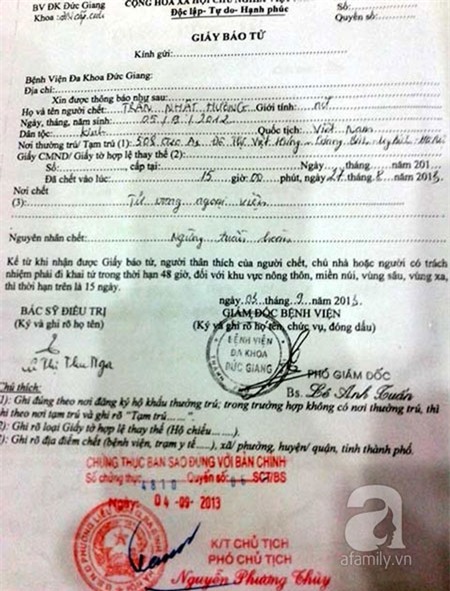 BV ĐK Đức Giang
CỘNG HÒA XÃ HỘI CHỦ NGHĨA VIỆT
Độc lập- Tự do- Hạnh phúc
Số:
Quyển số:
Khoa :
GIẤY BÁO TỬ
Kính gửi:
Bệnh Viện Đa Khoa Đức Giang:
Địa chỉ:
Xin được thông báo như sau:
Họ và tên người chết: TRẦN NHẬT HƯƠNG Giới tính: nữ
Ngày, tháng, năm sinh: 05/9/2012
Dân tộc: kinh Quốc tịch: Việt Nam
Nơi thường trú/ Tạm trú (1): 508 Đô Thị Việt Hưng
Giấy CMND/ Giấy tờ hợp lệ thay thế (2):
Số: , cấp tại: Ngày tháng năm 201
Đã chết vào lúc: 15 giờ 00 phút, ngày 27 tháng 8 năm 2013
Nơi chết
(3): Tử vong ngoại viện
Nguyên nhân chết: Ngừng tuần hoàn
Kể từ khi nhận được Giấy báo tử, người thân thích của người chết, chủ nhà hoặc người có trách
nhiệm phải đi khai tử trong thời hạn 48 giờ, đối với khu vực nông thôn, miền núi, vùng sâu, vùng xa,
thì thời hạn trên là 15 ngày.
ngày 03 tháng 9 năm 2013
BÁC SỸ ĐIỀU TRỊ
GIÁM ĐỐC BỆNH VIỆN
(Ký và ghi rõ họ tên)
(Ký và ghi rõ họ tên, chức vụ, đóng dấu)
BỆNH VIỆN
ĐA KHOA
ĐỨC GIANG
Thị Thu Nga
PHÓ GIÁM ĐỐC
Bs. Lê Anh Tuấn
Chú thích:
1): Ghi đúng theo nơi đăng ký hộ khẩu thường trú; trong trường hợp không có nơi thường trú, thì
ghi theo nơi tạm trú và ghi rõ "Tạm trú......".
2): Ghi rõ loại Giấy tờ hợp lệ thay thế (Hộ chiếu.....).
3): Ghi rõ địa điểm chết (bệnh viện, trạm y tế.....), xã/ phường, huyện/ quận, tỉnh thành phố.
CHỨNG THỰC BẢN SAO ĐÚNG VỚI BẢN CHÍNH
Số chứng thực: 4810 Quyển số: 05 SCT/BS
Ngày: 04 -09- 2013
K/T CHỦ TỊCH
PHÓ CHỦ TỊCH
Nguyễn Phương Thùy
afamily.vn